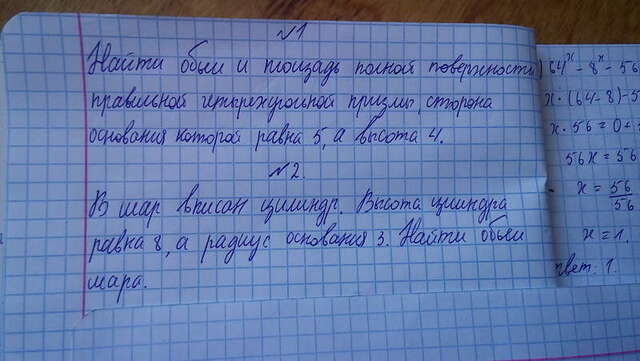 №1
Найти обьем и площадь полной поверхности
правильной четырехугольной призмы, сторона
основания которой равна 5, а высота 4.
№2.
В шар вписан цилиндр. Высота цилиндра
равна 8, а радиус основания 3. Найти обьем
шара.
64ˣ - 8ˣ - 56
x · (64 - 8) - 5
x · 56 = 0 +
56x = 56
x = 56/56
x = 1.
твет: 1.